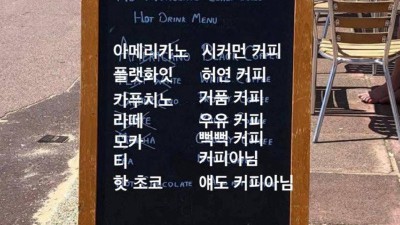 Hot Drink Menu
아메리카노 시커먼 커피
플랫화잇 허연 커피
카푸치노 거품 커피
라떼 우유 커피
모카 뻑뻑 커피
티 커피아님
핫 초코 얘도 커피아님